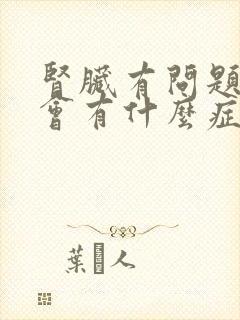 腎臟有問題
會有什麼症
葉 人